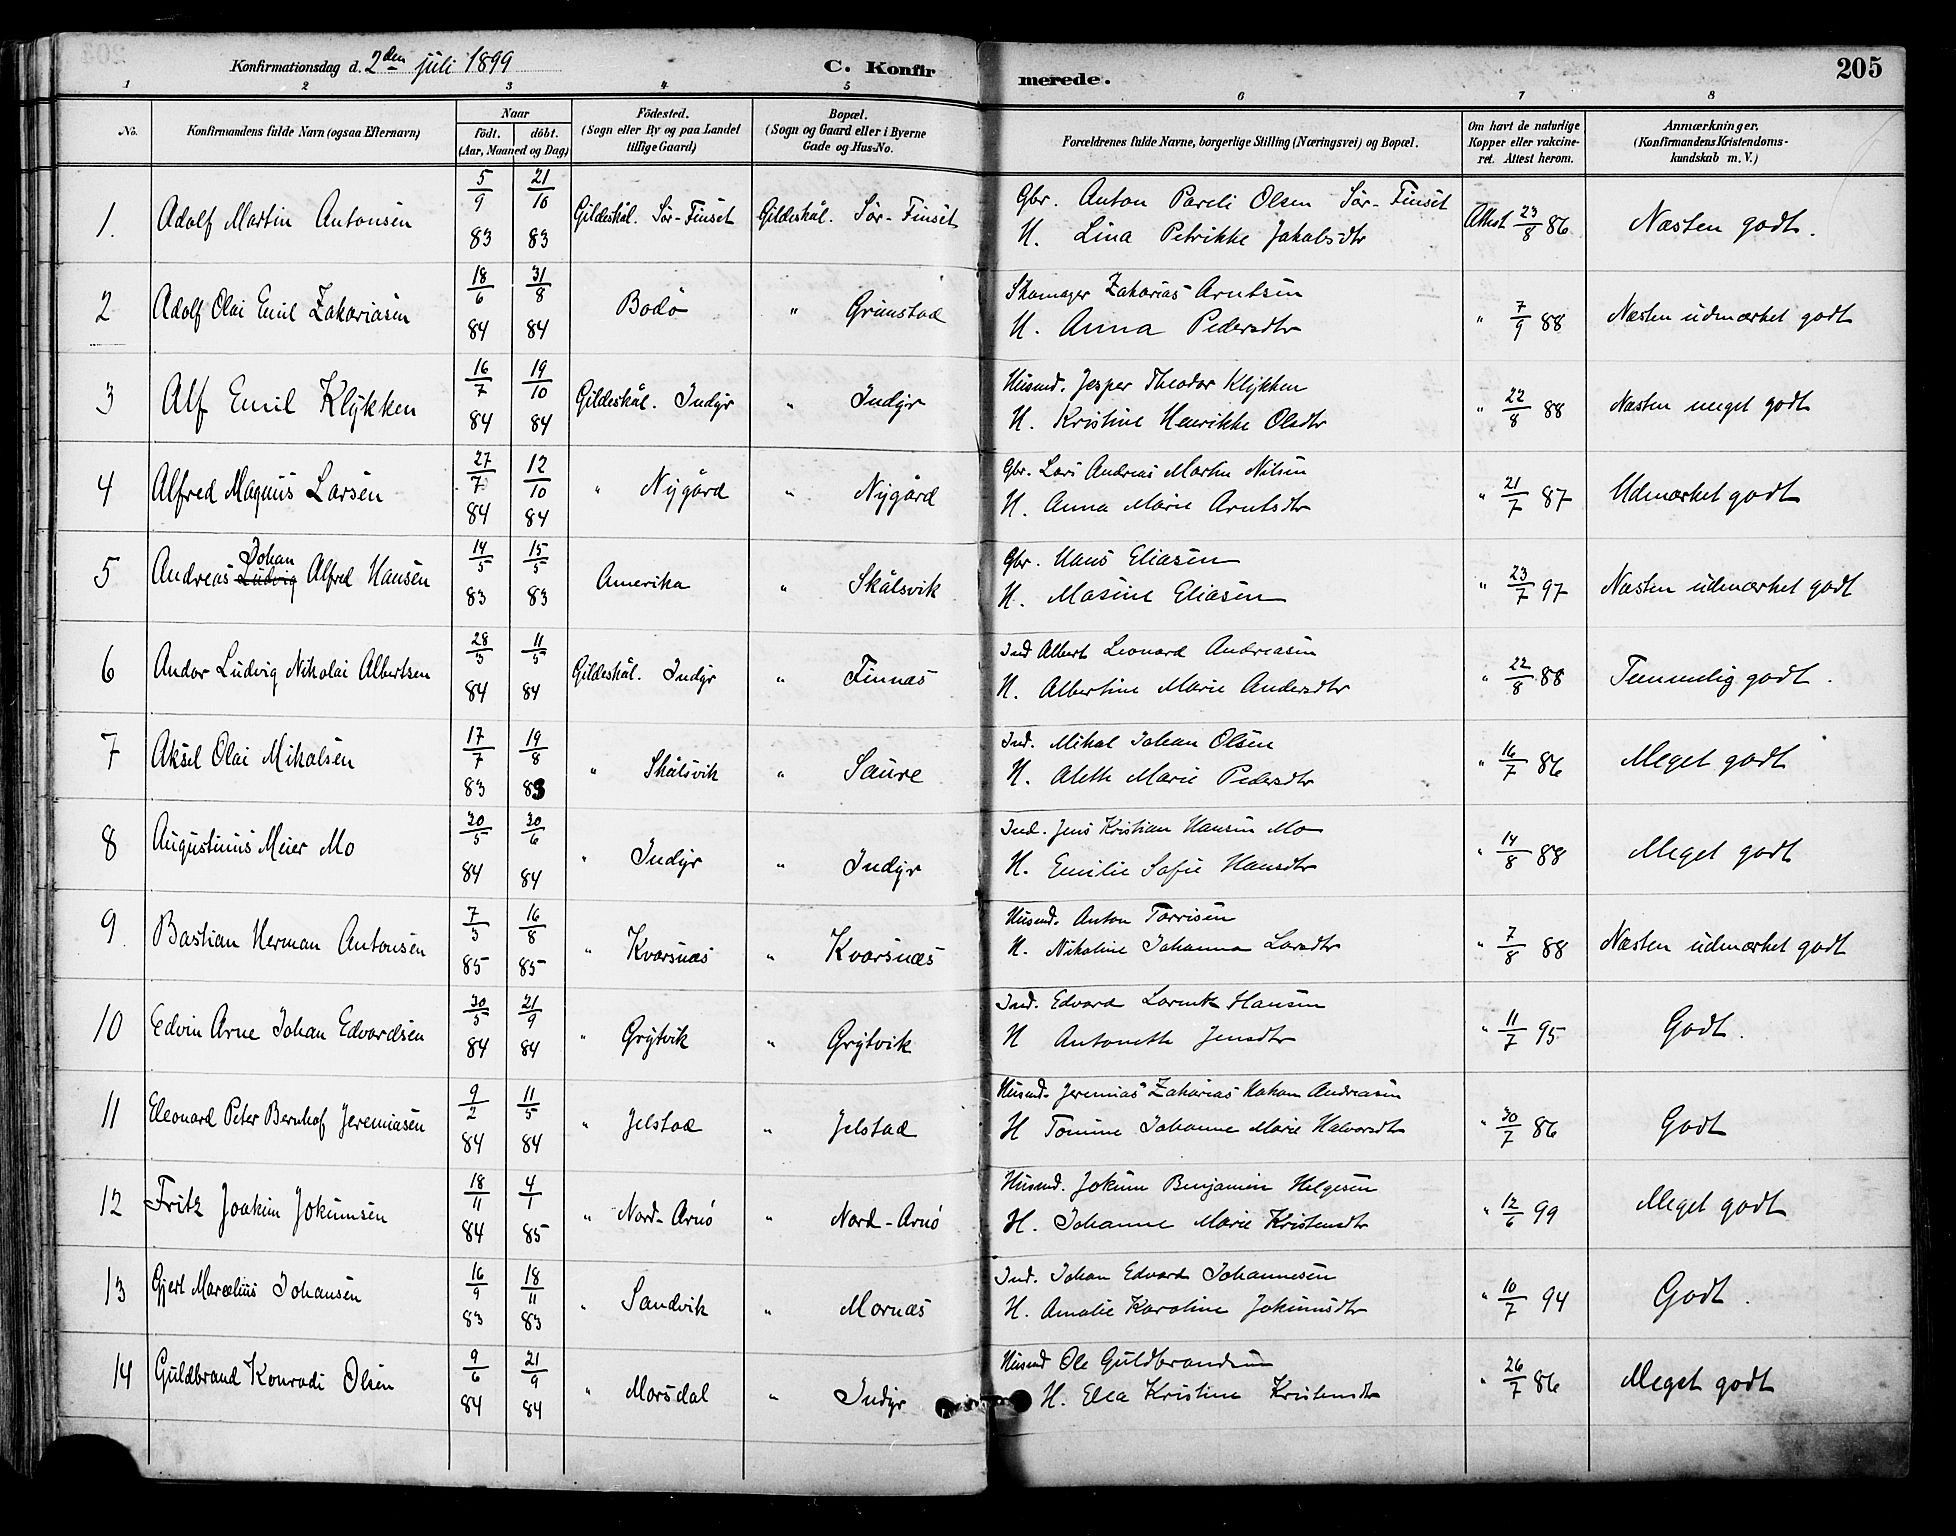 Konfirmationsdag d. 2den juli 1899 C. Konfirmerede. 205
1 2 3 4 5 6 7 8
No. Konfirmandens fulde Navn (ogsaa Efternavn) Naar født. døbt. (Aar, Maaned og Dag) Födested. (Sogn eller By og paa Landet tillige Gaard) Bopæl. (Sogn og Gaard eller i Byerne Gade og Hus-No. Forældrenes fulde Navne, borgerlige Stilling (Næringsvei) og Bopæl. Om havt de naturlige Kopper eller vakcineret. Attest herom. Anmærkninger. (Konfirmandens Kristendomskundskab m. V.)
1. Adolf Martin Antonsen 5/9 83 21/10 83 Gildeskål. Sør-Finset Gildeskål. Sør-Finset Gbr. Anton Pareli Olsen Sør-Finset Attest 23/8 86 Næsten godt.
H. Lina Petrikke Jakobsdtr
2 Adolf Olai Emil Zakariasen 18/6 84 31/8 84 Bodø " Grimstad Skomager Zakarias Arntsen " 7/9 88 Næsten udmærket godt
H. Anna Pedersdtr
3 Alf Emil Klykken 16/7 84 19/10 84 Gildeskål. Indyr " Indyr Husmd. Jesper Theodor Klykken " 22/8 88 Næsten meget godt
H. Kristine Henrikke Olsdtr
4 Alfred Magnus Larsen 27/7 84 12/10 84 " Nygård " Nygård Gbr. Lars Andreas Martin Nilsen " 21/7 87 Udmærket godt
H. Anna Marie Arntsdtr
5 Andreas Ludvig Johan Alfred Hansen 14/5 83 15/5 83 Amerika " Skålsvik Gbr. Hans Eliasen " 23/7 97 Næsten udmærket godt
H. Masine Eliasen
6 Andor Ludvig Nikolai Albertsen 28/3 84 11/5 84 Gildeskål. Indyr " Finnæs Ind Albert Leonard Andreasen " 22/8 88 Temmelig godt.
H. Albertine Marie Andersdtr
7 Aksel Olai Mikalsen 17/7 83 19/8 83 " Skålsvik " Saure Ind. Mikal Johan Olsen " 16/7 86 Meget godt
H. Aleth Marie Pedersdtr
8 Augustinus Meier Mo 30/5 84 30/6 84 " Indyr " Indyr Ind. Jens Kristian Hansen Mo " 14/8 88 Meget godt
H. Emilie Sofie Hansdtr
9. Bastian Herman Antonsen 7/5 85 16/8 85 " Kvarsnæs " Kvarsnæs Husmd. Anton Torrisen " 7/8 88 Næsten udmærket godt
H. Nikoline Johanna Larsdtr
10 Edvin Arne Johan Edvardsen 30/5 84 21/9 84 " Grytvik " Grytvik Ind. Edvard Lorentz Hansen " 11/7 95 Godt.
H Antoneth Jensdtr
11 Eleonard Peter Bernhof Jeremiasen 9/2 84 11/5 84 " Jelstad " Jelstad Husmd. Jeremias Zakarias Hakon Andreasen " 30/7 86 Godt
H Tomine Johanne Marie Halvorsdtr
12 Fritz Joakim Jokumsen 18/11 84 4/1 85 " Nord-Arnø " Nord-Arnø Husmd. Jokum Benjamin Helgesen " 12/6 99 Meget godt
H. Johanne Marie Kristensdtr
13 Gjert Marcelius Johansen 16/9 83 18/11 83 " Sandvik " Mornæs Ind. Johan Edvard Johannesen " 10/7 94 Godt.
H. Amalie Karoline Jokumsdtr
14 Guldbrand Konradi Olsen 9/6 84 21/9 84 " Morsdal " Indyr Husmd Ole Guldbrandsen " 26/7 86 Meget godt
H. Elea Kristine Kristensdtr